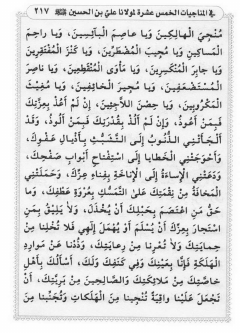 في المناجيات الخمس عشرة لمولانا علي بن الحسين ﷺ ٢١٧
مُنْجِيَ الْهَالِكِينَ وَيَا عَاصِمَ الْبَآئِسِينَ، وَيَا رَاحِمَ
الْمَسَاكِينِ وَيَا مُجِيبَ الْمُضْطَرِّينَ، وَيَا كَنْزَ الْمُفْتَقِرِينَ
وَيَا جَابِرَ الْمُنْكَسِرِينَ، وَيَا مَأْوَى الْمُنْقَطِعِينَ، وَيَا نَاصِرَ
الْمُسْتَضْعَفِينَ، وَيَا مُجِيرَ الْخَائِفِينَ، وَيَا مُغِيثَ
الْمَكْرُوبِينَ، وَيَا حِصْنَ اللاَّجِئِينَ، إِنْ لَمْ أَعُذْ بِعِزَّتِكَ
فَبِمَنْ أَعُوذُ، وَإِنْ لَمْ أَلُذْ بِقُدْرَتِكَ فَبِمَنْ أَلُوذُ، وَقَدْ
أَلْجَأَتْنِي الذُّنُوبُ إِلَى التَّشَبُّثِ بِأَذْيَالِ عَفْوِكَ،
وَأَحْوَجَتْنِي الْخَطَايَا إِلَى اسْتِفْتَاحِ أَبْوَابِ صَفْحِكَ،
وَدَعَتْنِي الإِسَاءَةُ إِلَى الإِنَاخَةِ بِفِنَاءِ عِزِّكَ، وَحَمَلَتْنِي
الْمَخَافَةُ مِنْ نِقْمَتِكَ عَلَى التَّمَسُّكِ بِعُرْوَةِ عَطْفِكَ، وَمَا
حَقُّ مَنِ اعْتَصَمَ بِحَبْلِكَ أَنْ يُخْذَلَ، وَلاَ يَلِيقُ بِمَنِ
اسْتَجَارَ بِعِزِّكَ أَنْ يُسْلَمَ أَوْ يُهْمَلَ إِلَهِي فَلاَ تُخْلِنَا مِنْ
حِمَايَتِكَ وَلاَ تُعْرِنَا مِنْ رِعَايَتِكَ، وَذُدْنَا عَنْ مَوَارِدِ
الْهَلَكَةِ فَإِنَّا بِعَيْنِكَ وَفِي كَنَفِكَ وَلَكَ، أَسْأَلُكَ بِأَهْلِ
خَاصَّتِكَ مِنْ مَلاَئِكَتِكَ وَالصَّالِحِينَ مِنْ بَرِيَّتِكَ، أَنْ
تَجْعَلَ عَلَيْنَا وَاقِيَةً تُنْجِينَا مِنَ الْهَلَكَاتِ وَتُجَنِّبُنَا مِنَ